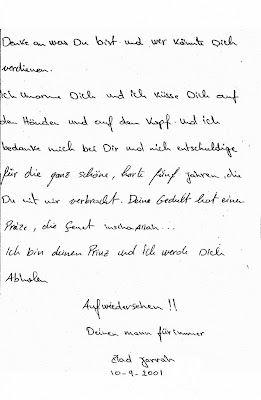 Denke an was Du bist und wer könnte Dich
verdienen.
Ich Umarme Dich und ich küsse Dich auf
den Händen und auf dem Kopf. und ich
bedanke mich bei Dir und mich entschuldige
für die ganz schöne, harte fünf jahren, die
Du mit mir verbracht. Deine Gedult hat einen
Preize, die Genet inschaAllah...
Ich bin deinen Prinz und Ich werde Dich
Abholen
Aufwiedersehen !!
Deinen mann für immer
Ziad Jarrah
10-9-2001